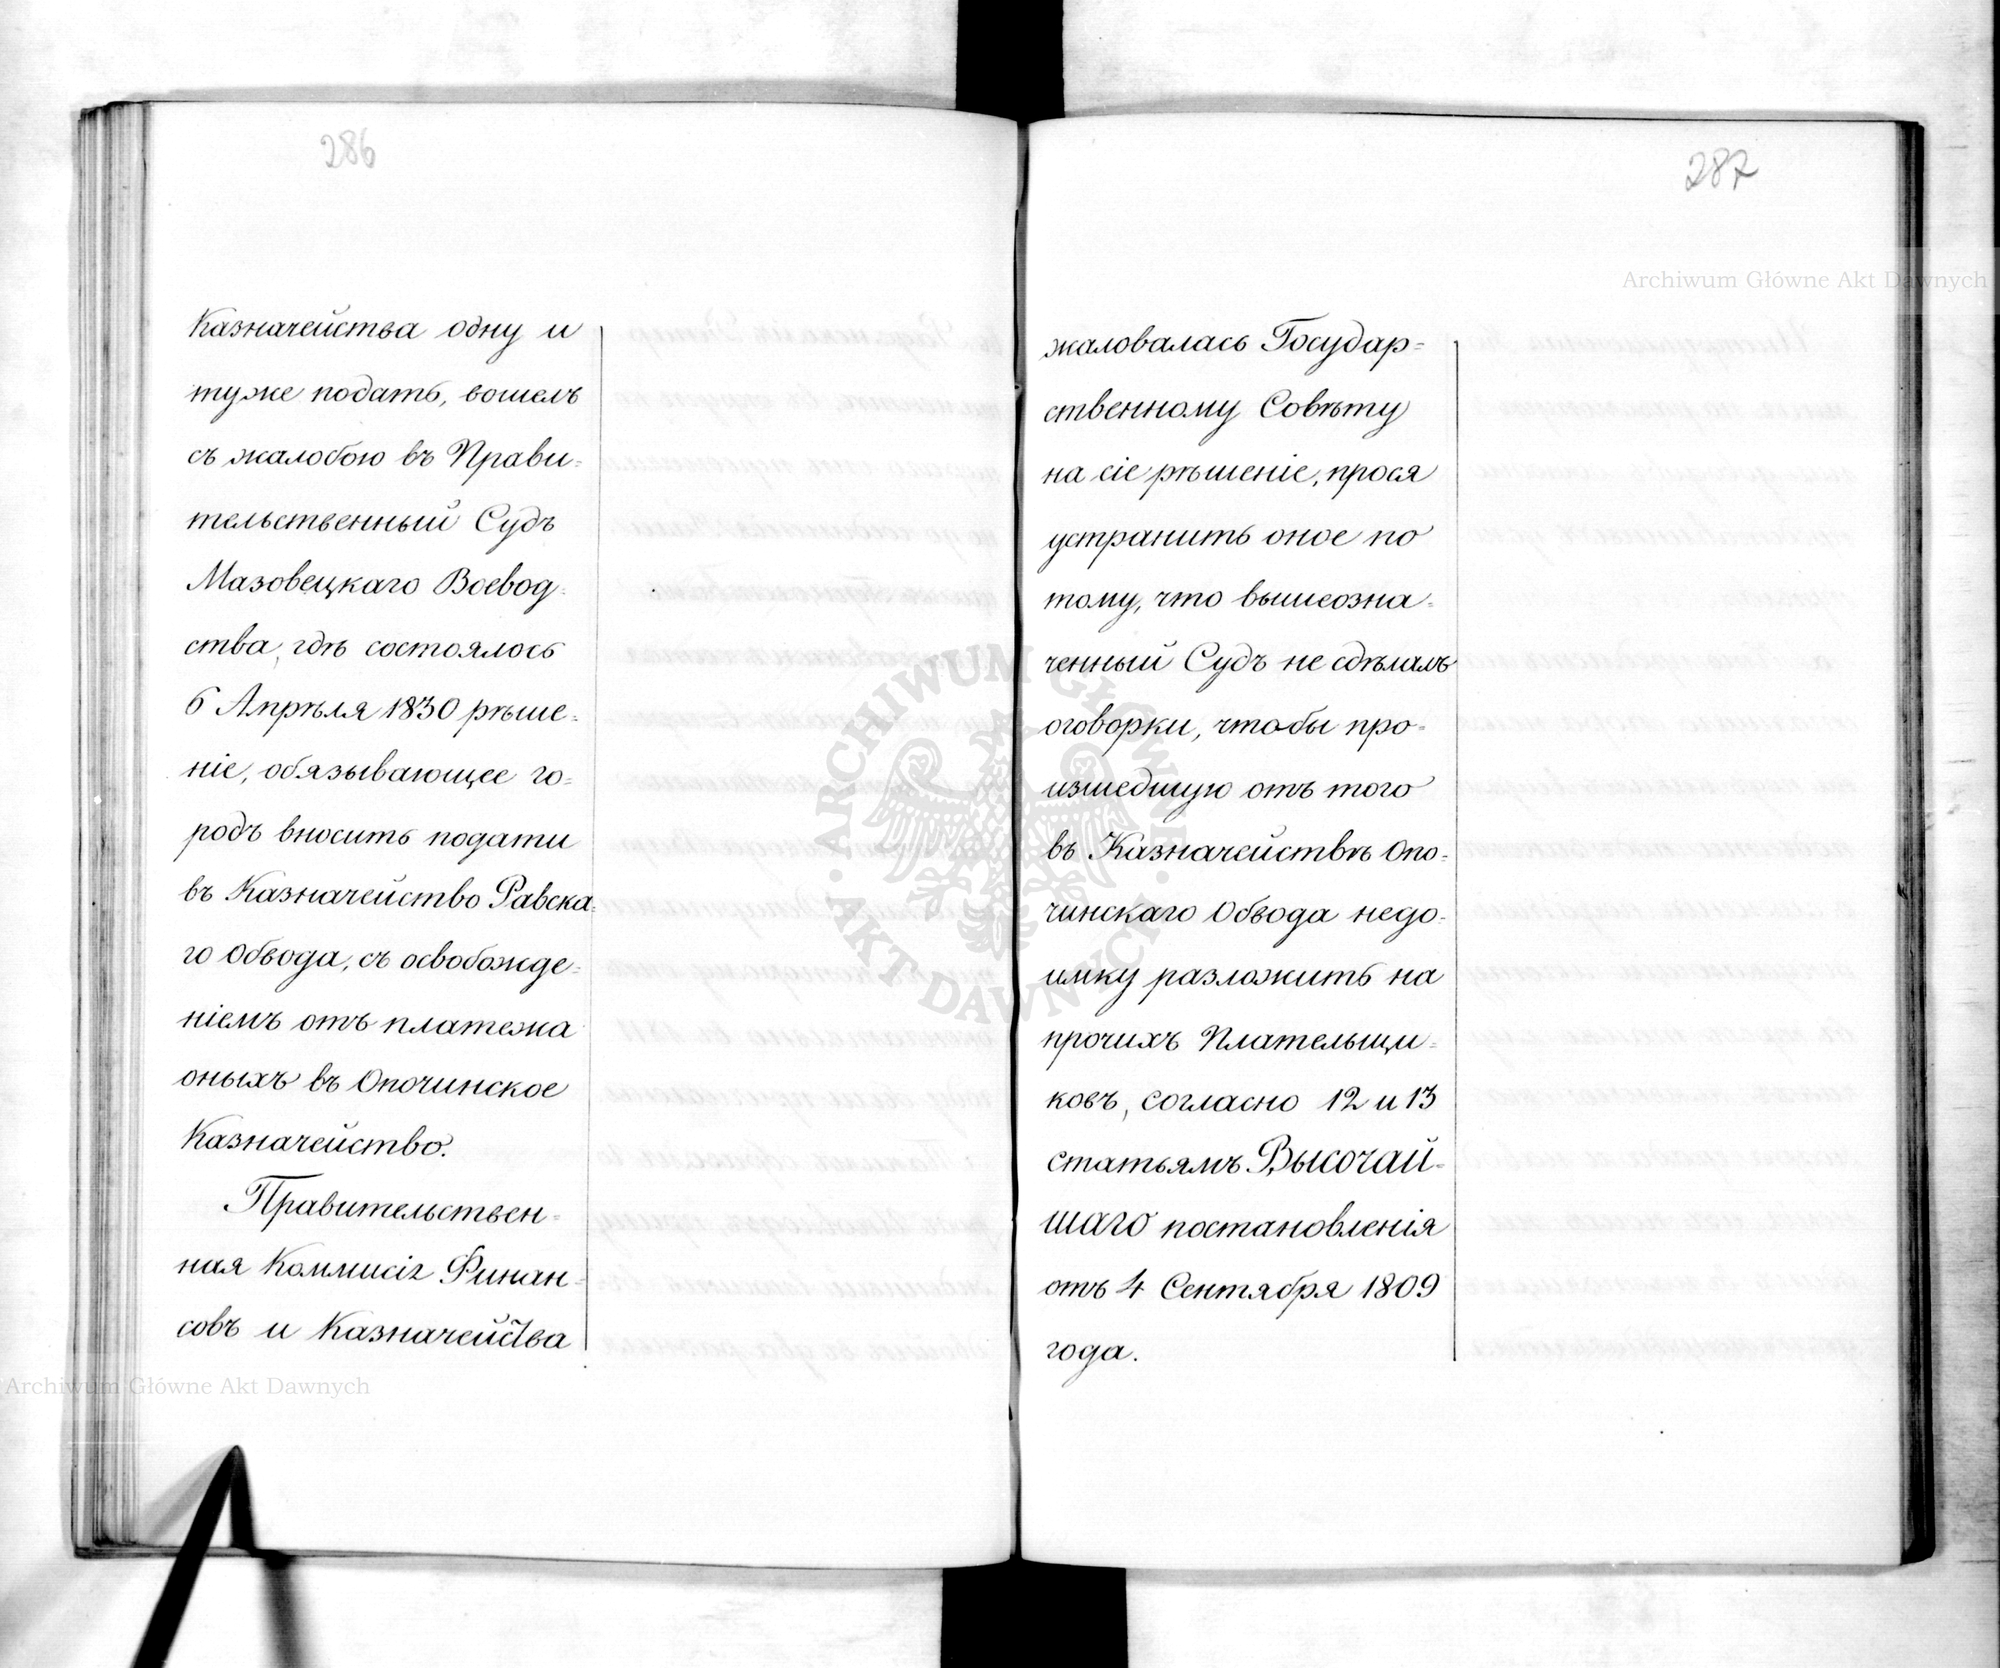 286
Казначейства одну и
туже подать, вошелъ
съ жалобою въ Прави=
тельственный Судъ
Мазовецкаго Воевод=
ства, гдѣ состоялось
6 Апрѣля 1830 рѣше=
ніе, обязывающее го=
родъ вносить подати
въ Казначейство Равска=
го Обвода, съ освобожде=
ніемъ отъ платежа
оныхъ въ Опочинское
Казначейство.
Правительствен=
ная Коммисія Финан=
совъ и Казначейства
287
жаловалась Государ=
ственному Совѣту
на сіе рѣшеніе, прося
устранить оное по
тому, что вышеозна=
ченный Судъ не сдѣлалъ
оговорки, чтобы про=
изшедшую отъ того
въ Казначействѣ Опо=
чинскаго Обвода недо=
имку разложить на
прочихъ Плательщи=
ковъ, согласно 12 и 13
статьямъ Высочай=
шаго постановленія
отъ 4 Сентября 1809
года.
Archiwum Główne Akt Dawnych
ARCHIWUM GŁÓWNE
AKT DAWNYCH
Archiwum Główne Akt Dawnych